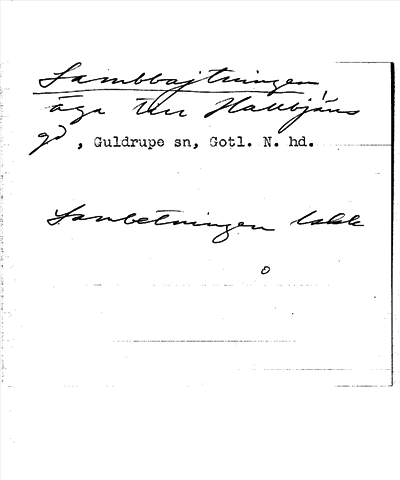 Sambbajtningen,
äga till Hallbjäns
gd, Guldrupe sn, Gotl. N. hd.
Lambetningen